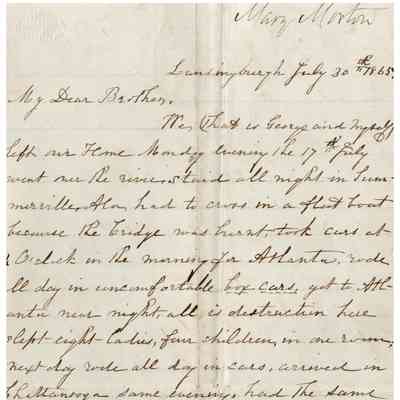 Mary Morton
Lansingburgh July 30th 1865.
My Dear Brother,
We, (that is George and myself
left our Home Monday evening the 17th July
went over the river, staid all night in Sum-
merville, Ala, had to cross in a float boat
because the bridge was burnt, took cars at
O,clock in the morning for Atlanta, rode
ll day in uncomfortable box cars, got to Atl-
anta near night, all is destruction here
slept eight ladies, four children, in one room,
next day rode all day in cars, arrived in
Chattanooga same evening, had the same